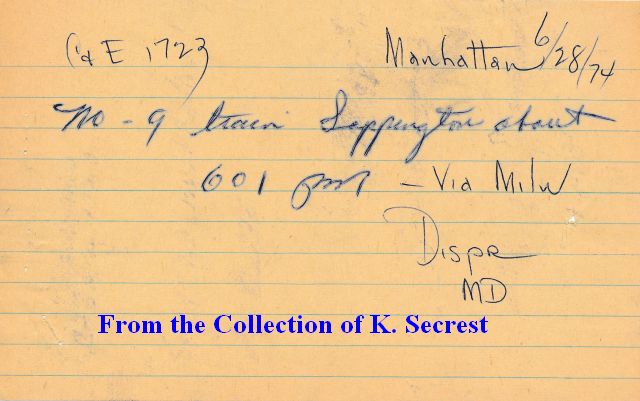 C&E 1723 Manhattan 6/28/74
No - 9 train Sappington about
601 pm - Via Milw
Dispr
MD
From the Collection of K. Secrest